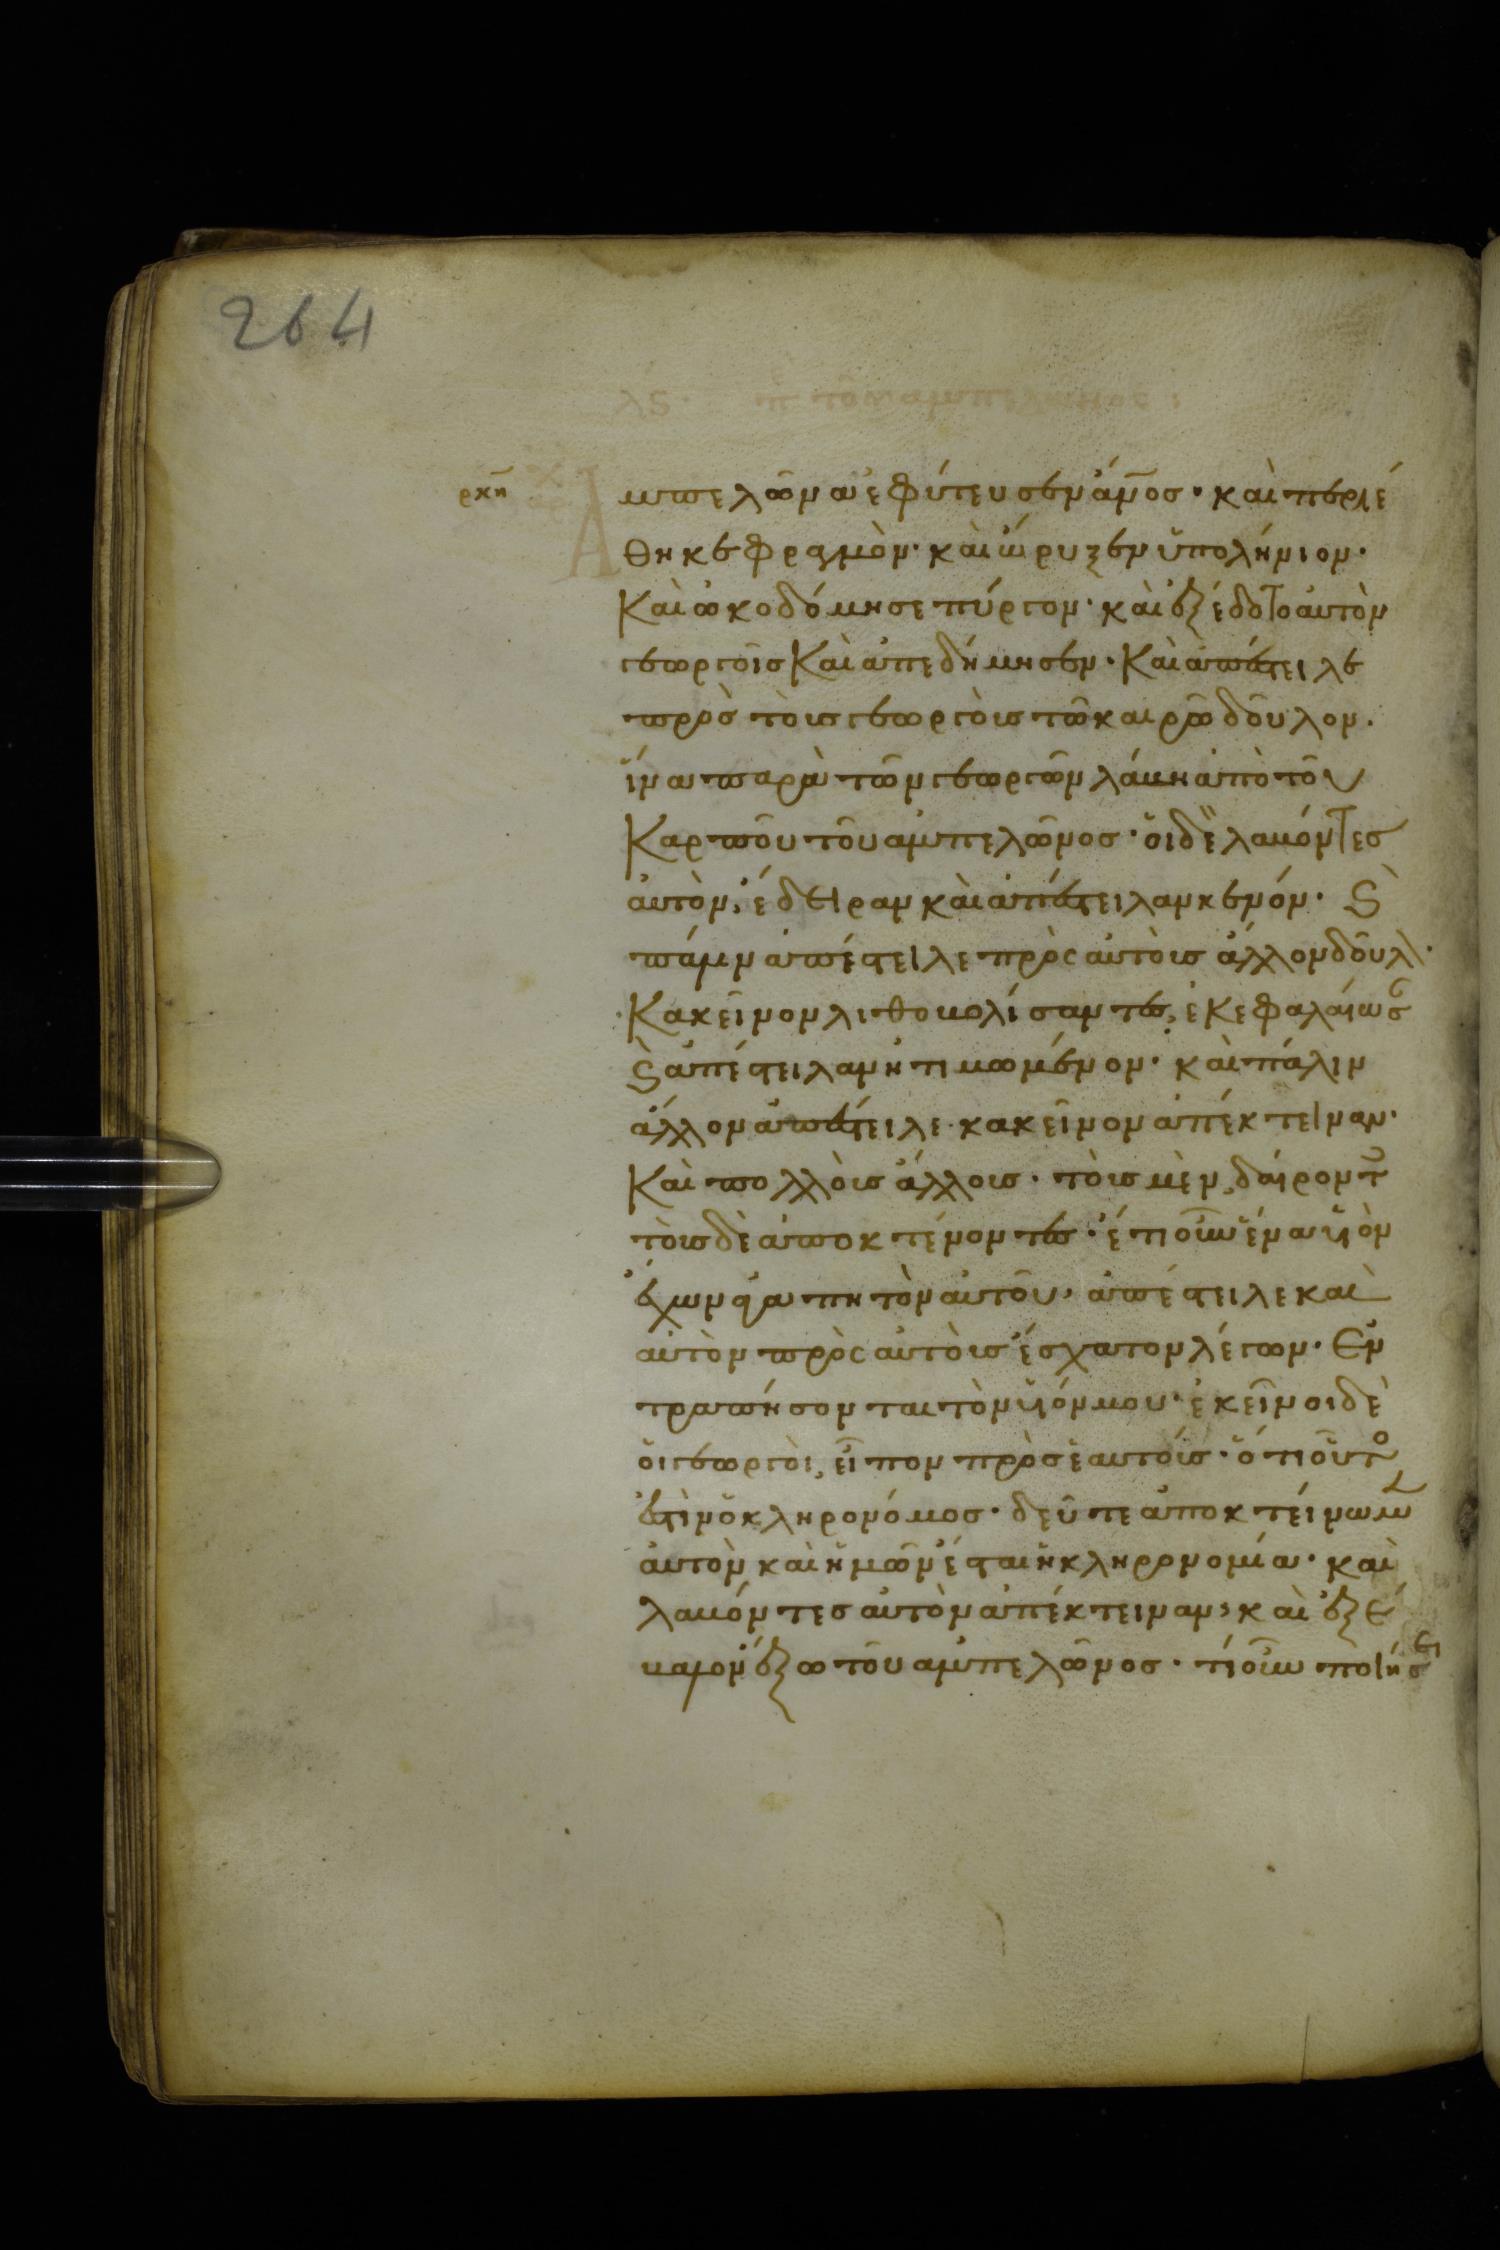 264
λς. π τοῦ ἀμπελῶνος :
ρκη
Ἀμπελῶνα ἐφύτευσεν ἄνος · καὶ περιέ
θηκε φραγμὸν · καὶ ὤρυξεν ὑπολήνιον ·
Καὶ ὠκοδόμησε πύργον · καὶ ἐξέδοτο αὐτὸν
γεωργοῖς Καὶ ἀπεδήμησεν · Καὶ ἀπέστειλε
πρὸσ τοὺσ γεωργοὺσ τῶ καιρῶ δοῦλον ·
ἵνα παρὰ τῶν γεωργῶν λάβη ἀπὸ τοῦ
Καρποῦ τοῦ ἀμπελῶνοσ · οἱ δὲ λαβόντεσ
αὐτὸν, ἔδειραν καὶ ἀπέστειλαν κενόν · Ϗ
πάλιν ἀπέστειλε πρὸς αὐτοὺσ ἄλλον δοῦλ ·
Κακεῖνον λιθοβολίσαντες, ἐκεφαλαίωσ
Ϗ ἀπέστειλαν ἠτιμωμένον · καὶ πάλιν
ἄλλον ἀπέστειλε · κακεῖνον ἀπέκτειναν ·
Καὶ πολλοὺσ ἄλλουσ · τοὺσ μὲν, δαίροντ
τοὺσ δὲ ἀποκτένοντες · ἔτι οὖν ἕνα υἱὸν
ἔχων ἀγαπητὸν αὐτοῦ, ἀπέστειλε καὶ
αὐτὸν πρὸς αὐτοὺσ ἔσχατον λέγων · Ἐν
τραπήσονται τὸν υἱόν μου · ἐκεῖνοι δὲ
οἱ γεωργοὶ, εἶπον πρὸσ ἑαυτούσ · ὅτι οὗτο
ἐστὶν ὁ κληρονόμοσ · δεῦτε ἀποκτείνωμ
αὐτὸν καὶ ἡμῶν ἔσται ἡ κληρονομία · καὶ
λαβόντεσ αὐτὸν ἀπέκτειναν, καὶ ἐξέ
βαλον ἔξω τοῦ ἀμπελῶνοσ · τί οὖν ποιήσει